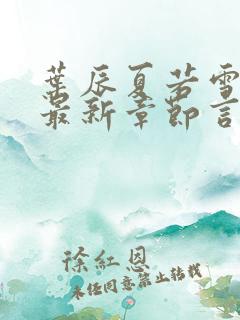 葉辰夏若雪
最新章節言
徐紅恩
未经同意禁止转载